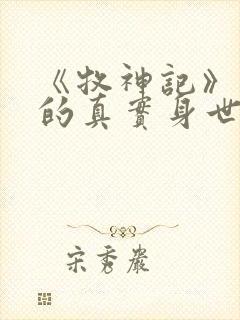 《牧神記》
的真實身世
宋秀嚴